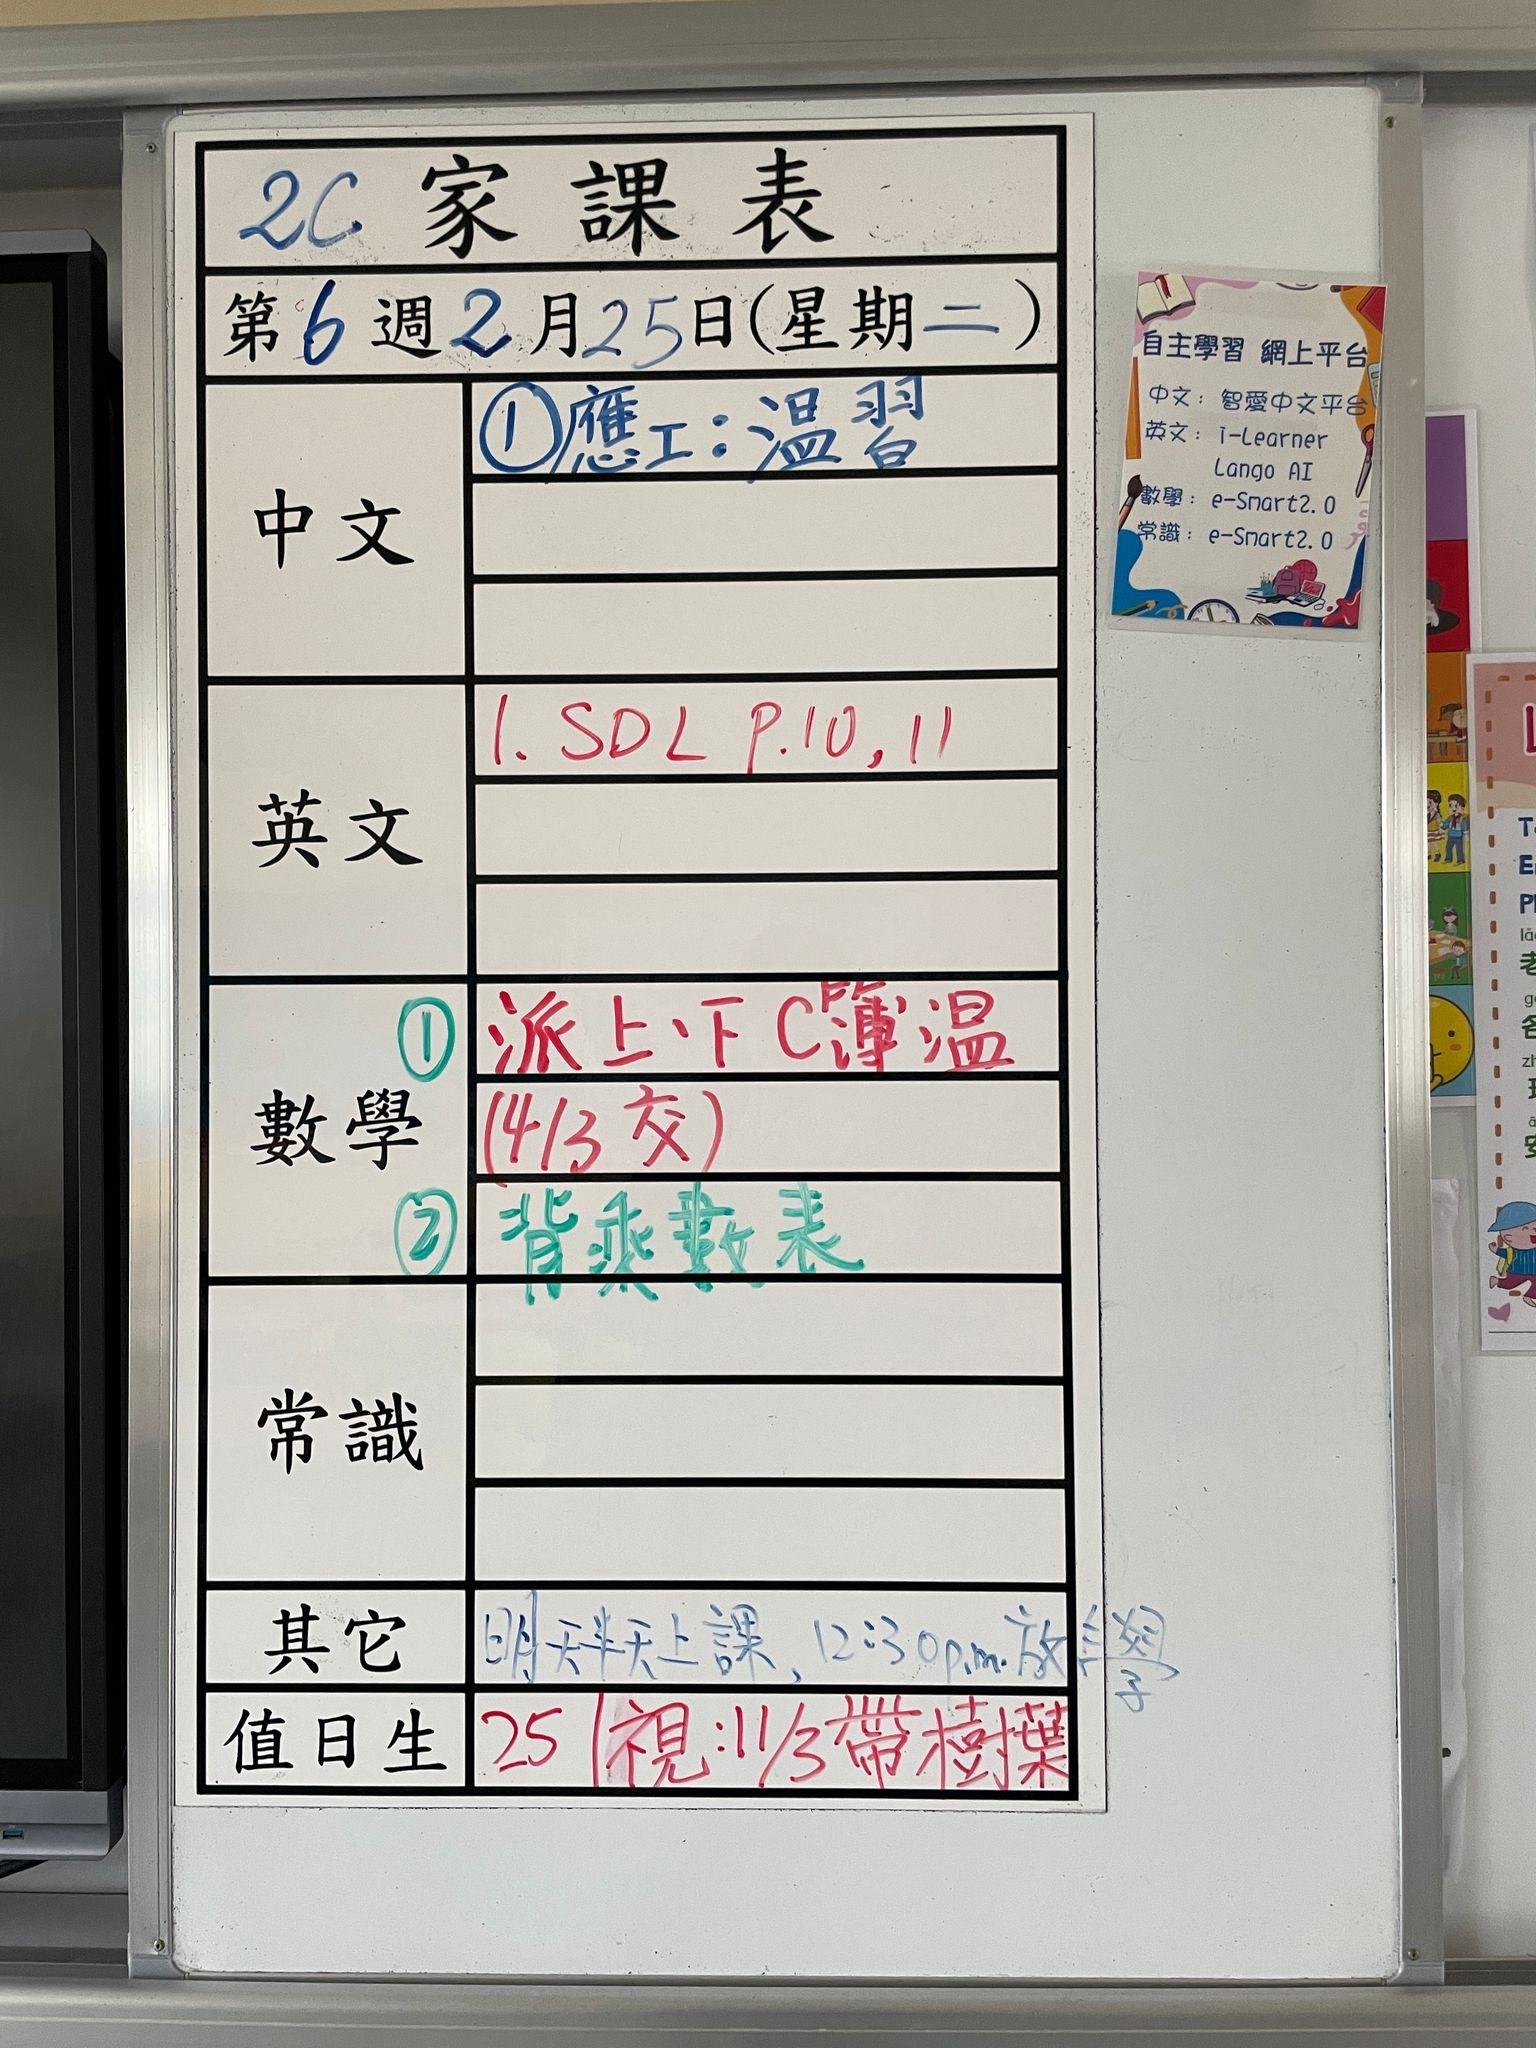 2C 家課表
第6週2月25日(星期二)
中文
①應工:溫習
英文
1. SDL P.10, 11
數學
① 派上、下C簿溫
(4/3 交)
② 背乘數表
常識
其它
明天半天上課, 12:30p.m. 放學
值日生
25 | 視:11/3 帶樹葉
自主學習 網上平台
中文: 智愛中文平台
英文: i-Learner
Lango AI
數學: e-Smart2.0
常識: e-Smart2.0
老
爸
安